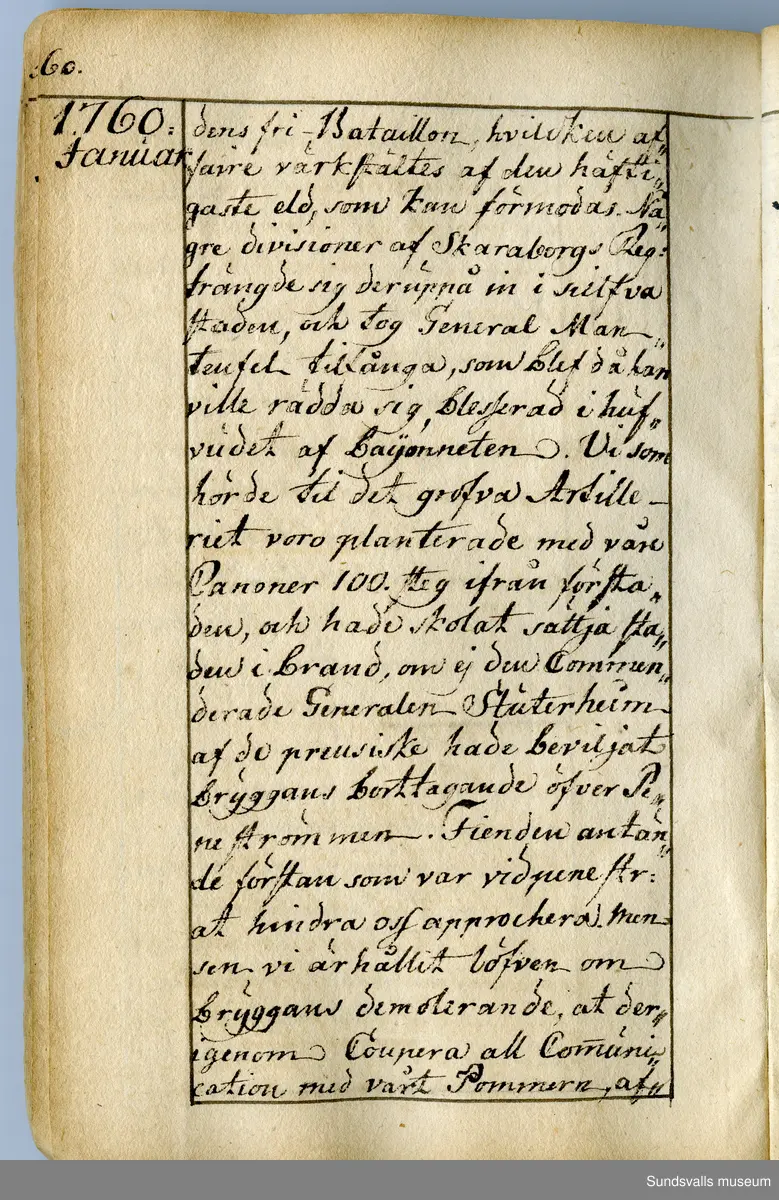 60.
1760:
Januar
dens fri-Bataillon, hvilcken af„
faire värkstältes af den häfti„
gaste eld, som kan förmodas. Nå„
gre divisioner af Skaraborgs Reg:
trängde sig deruppå in i sielfva
staden, och tog General Man„
teufel tilfånga, som blef då han
ville rädda sig, blesserad i huf„
vudet af bayonneten. Vi som
hörde til det grofva Artille-
riet voro planterade med våre
Canoner 100. steg ifrån första„
den, och hade skolat sättja sta„
den i brand, om ej den Commen„
derade Generalen Stuterheim
af de preusiske hade beviljat
bryggans borttagande öfver Pe„
ne strömmen. Fienden antän„
de förstan som var vid pene str:
at hindra oss approchera. Men
sen vi ärhållit löfven om
bryggans demolerande, at der„
igenom Coupera all Com̄uni„
cation med vårt Pommern, af„
Sundsvalls museum